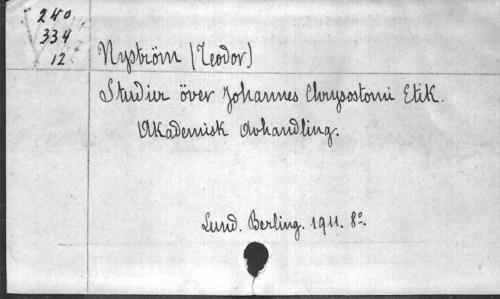 240
334
12
Nyström (Teodor)
Studier över Johannes Chrysostomi Etik.
Akademisk Avhandling.
Lund. Berling. 1911. 8º.